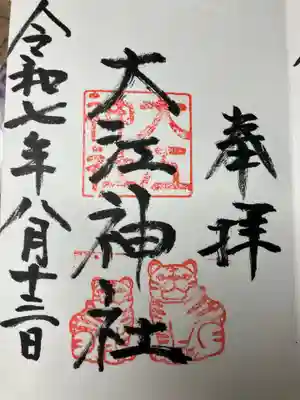 奉拝
大江神社
令和七年八月十三日